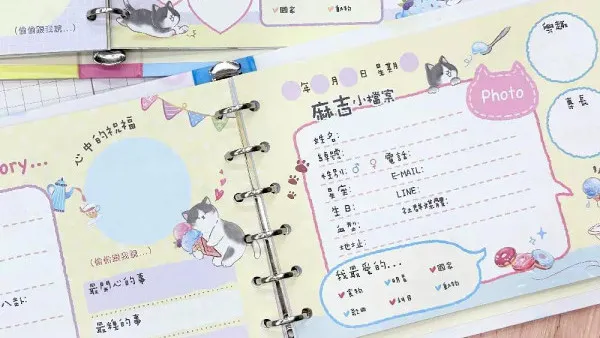 (偷偷跟我說...)
國家
動物
年 月 日 星期
麻吉小檔案
Photo
興趣
專長
姓名:
綽號:
性別: ♂ ♀ 電話:
星座: E-MAIL:
生日: LINE:
血型: 社群媒體:
地址:
我最愛的...
食物 明星 國家
歌曲 科目 動物
心中的祝福
ory...
(偷偷跟我說...)
最開心的事
最糗的事
八卦: